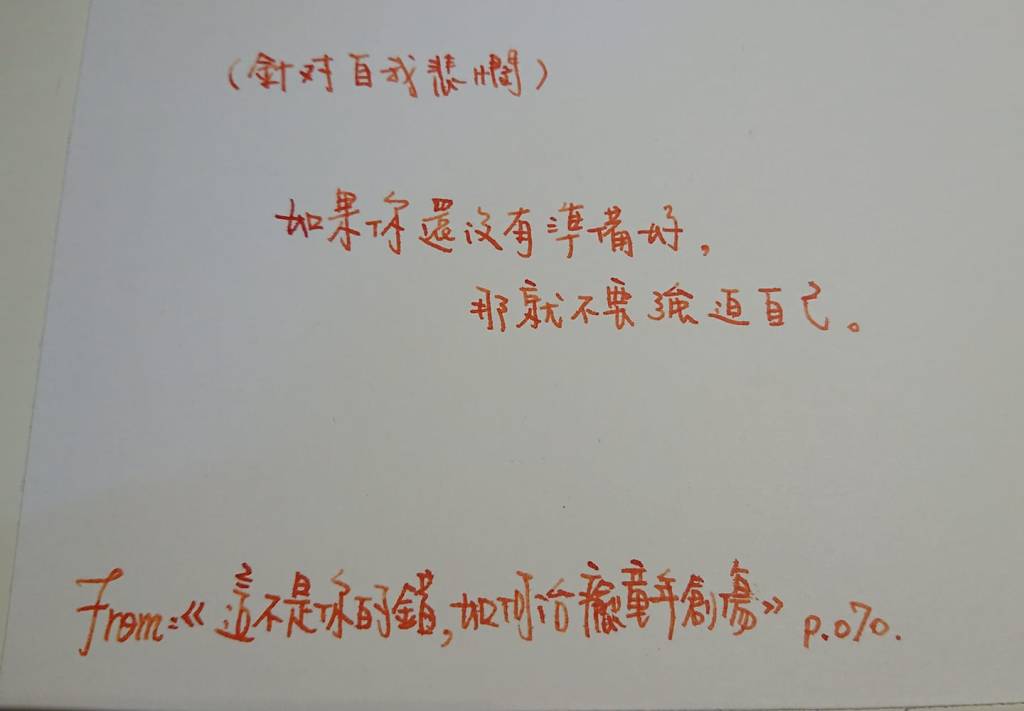 (針对自我悲憫)
如果你還没有準備好,
那就不要強迫自己。
From:《這不是你的錯,如何治癒童年創傷》 p.070.